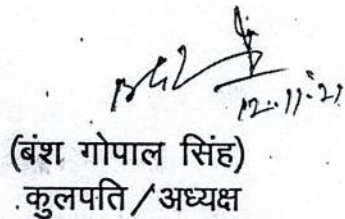 12.11.21
(बंश गोपाल सिंह)
कुलपति/अध्यक्ष